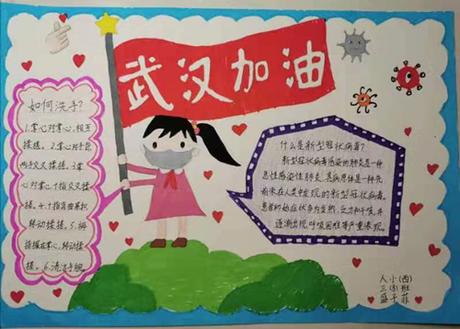 武汉加油
如何洗手?
1.掌心对掌心,相互
揉搓。2.掌心对手
两手交叉揉搓。3.掌
心对掌心十指交叉揉
搓。4.十指弯曲紧扣
移动揉搓。5.拇
指握在掌心,移动揉
搓。6.清洁手腕
什么是新型冠状病毒?
新型冠状病毒感染的肺炎是一种
急性感染性肺炎,其病原体是一种先
前未在人类中发现的新型冠状病毒,
患者初始症状多为发热、乏力和干咳,并
逐渐出现呼吸困难等严重表现。
人小(西)
三 班
盛子菲